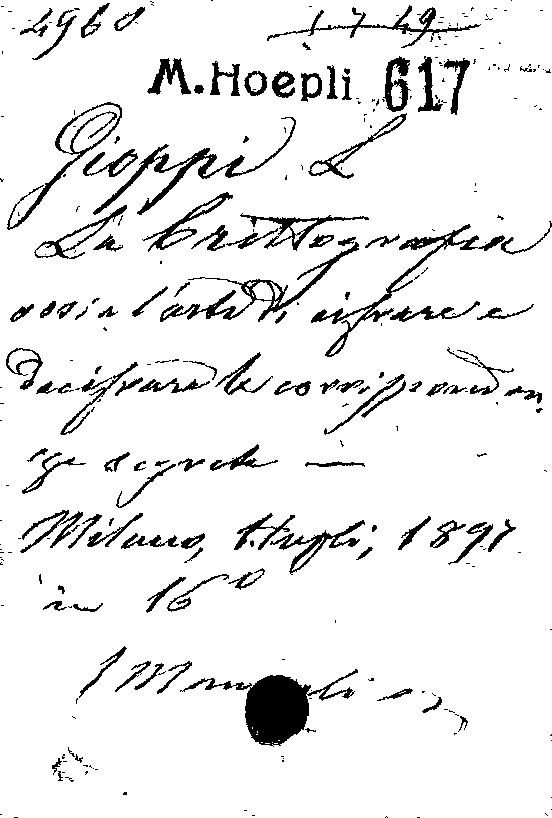 4960 1 7 49
M. Hoepli 617
Gioppi L
La Crittografia
ossia l'arte di cifrare e
decifrare le corrisponden
ze segrete —
Milano, Hoepli, 1897
in 16°